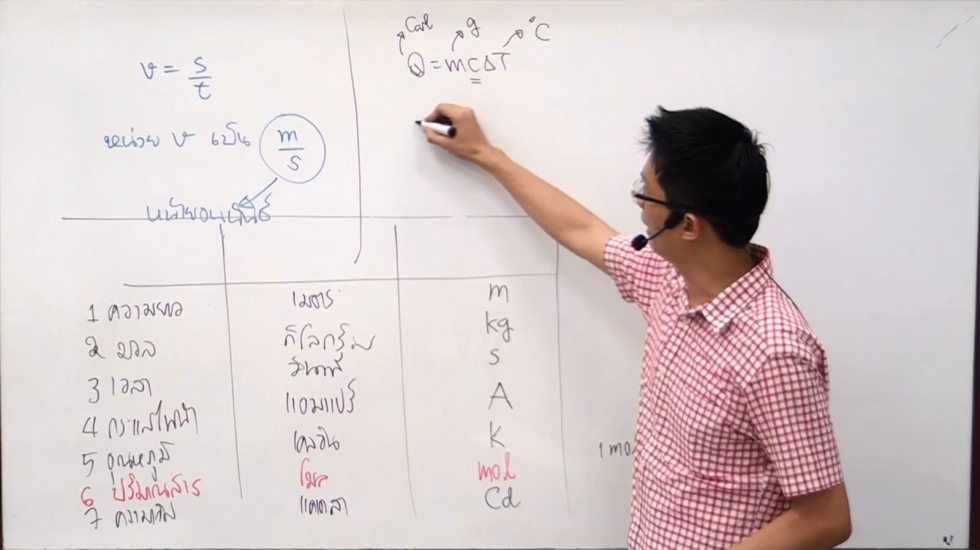 v = s/t
หน่วย v เป็น m/s
หน่วยอนุพันธ์
Cal g °C
Q = mcΔT
1 ความยาว เมตร m
2 มวล กิโลกรัม kg
3 เวลา วินาที s
4 กระแสไฟฟ้า แอมแปร์ A
5 อุณหภูมิ เคลวิน K
6 ปริมาณสาร โมล mol
7 แคนเดลา Cd
1 mo